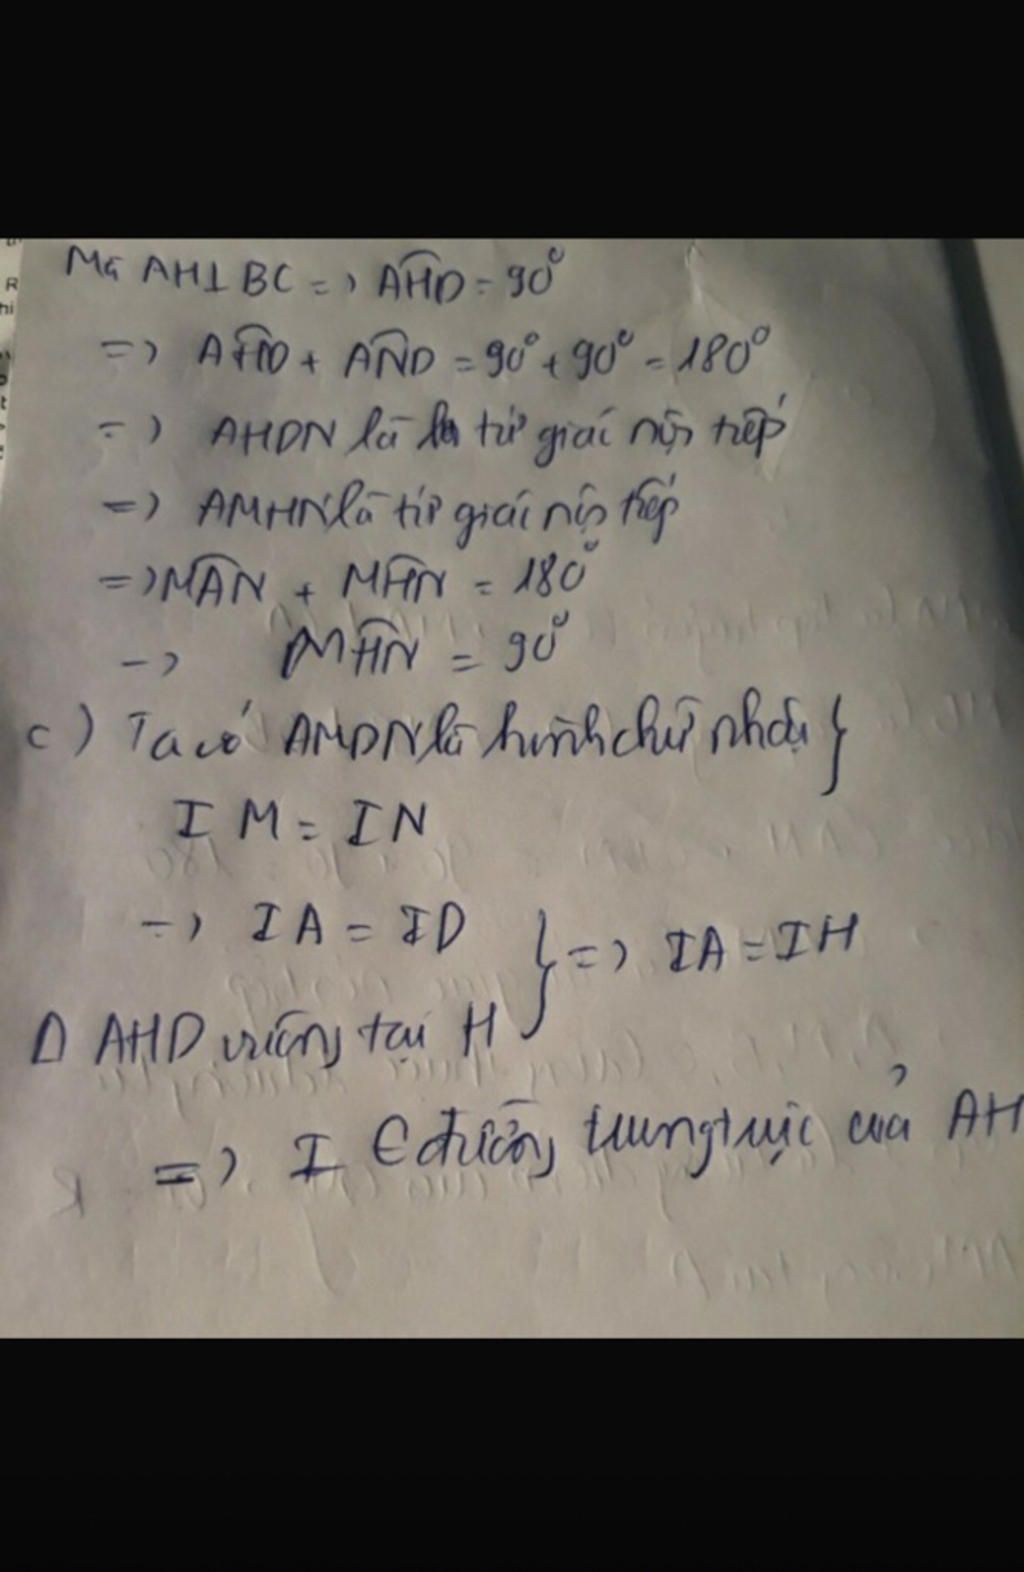 Mà AH⊥BC => AHD = 90°
=> AHD + AND = 90° + 90° = 180°
=> AHDN là tứ giác nội tiếp
=> AMHN là tứ giác nội tiếp
=> MAN + MHN = 180°
-> MHN = 90°
c) Ta có AMDN là hình chữ nhật }
IM = IN
=> IA = ID } => IA = IH
Δ AHD vuông tại H
=> I ∈ đường trung trực của AH